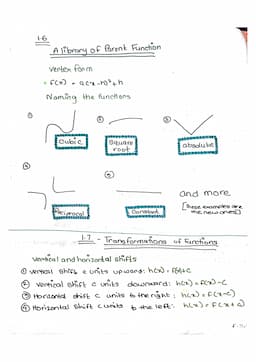 1.6
A library of Parent Function
Vertex form
• f(x) = a(x-h)²+h
Naming the functions
① ② ③
Cubic Square root absolute
④ ⑤
Reciprocal Constant and more
[these examples are the new ones]
1.7 - Transformations of functions
vertical and horizontal shifts
① vertical shift c units upward: h(x)= f(x)+c
② vertical shift c units downward: h(x) = f(x)-c
③ Horizontal shift c units to the right: h(x) = f(x-c)
④ Horizontal shift c units to the left: h(x) = f(x+c)